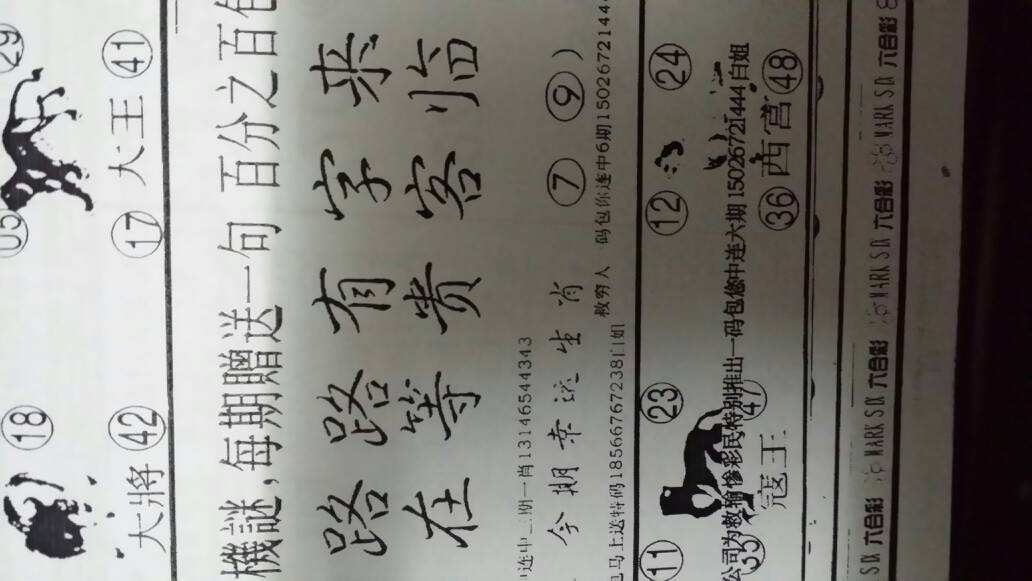 ⑱ 29
大將 ㊷ ⑰ 大王 ㊶
機謎,每期贈送一句 百分之百包
路路有字来
在等贵客临
连中二期一肖13146544343
今期幸运生肖 ⑦ ⑨)
马上送特码18566767238 救穷人 码包你连中6期1502672144
⑪ ㉓ ⑫ ㉔
公司为救输惨彩民特别推出一码包您中连六期15026721444白姐
寇王 ㊼ ㊱ 西宫 ㊽
SIX 六合彩 MARK SIX 六合彩 MARK SIX 六合彩 MARK SIX 六合彩